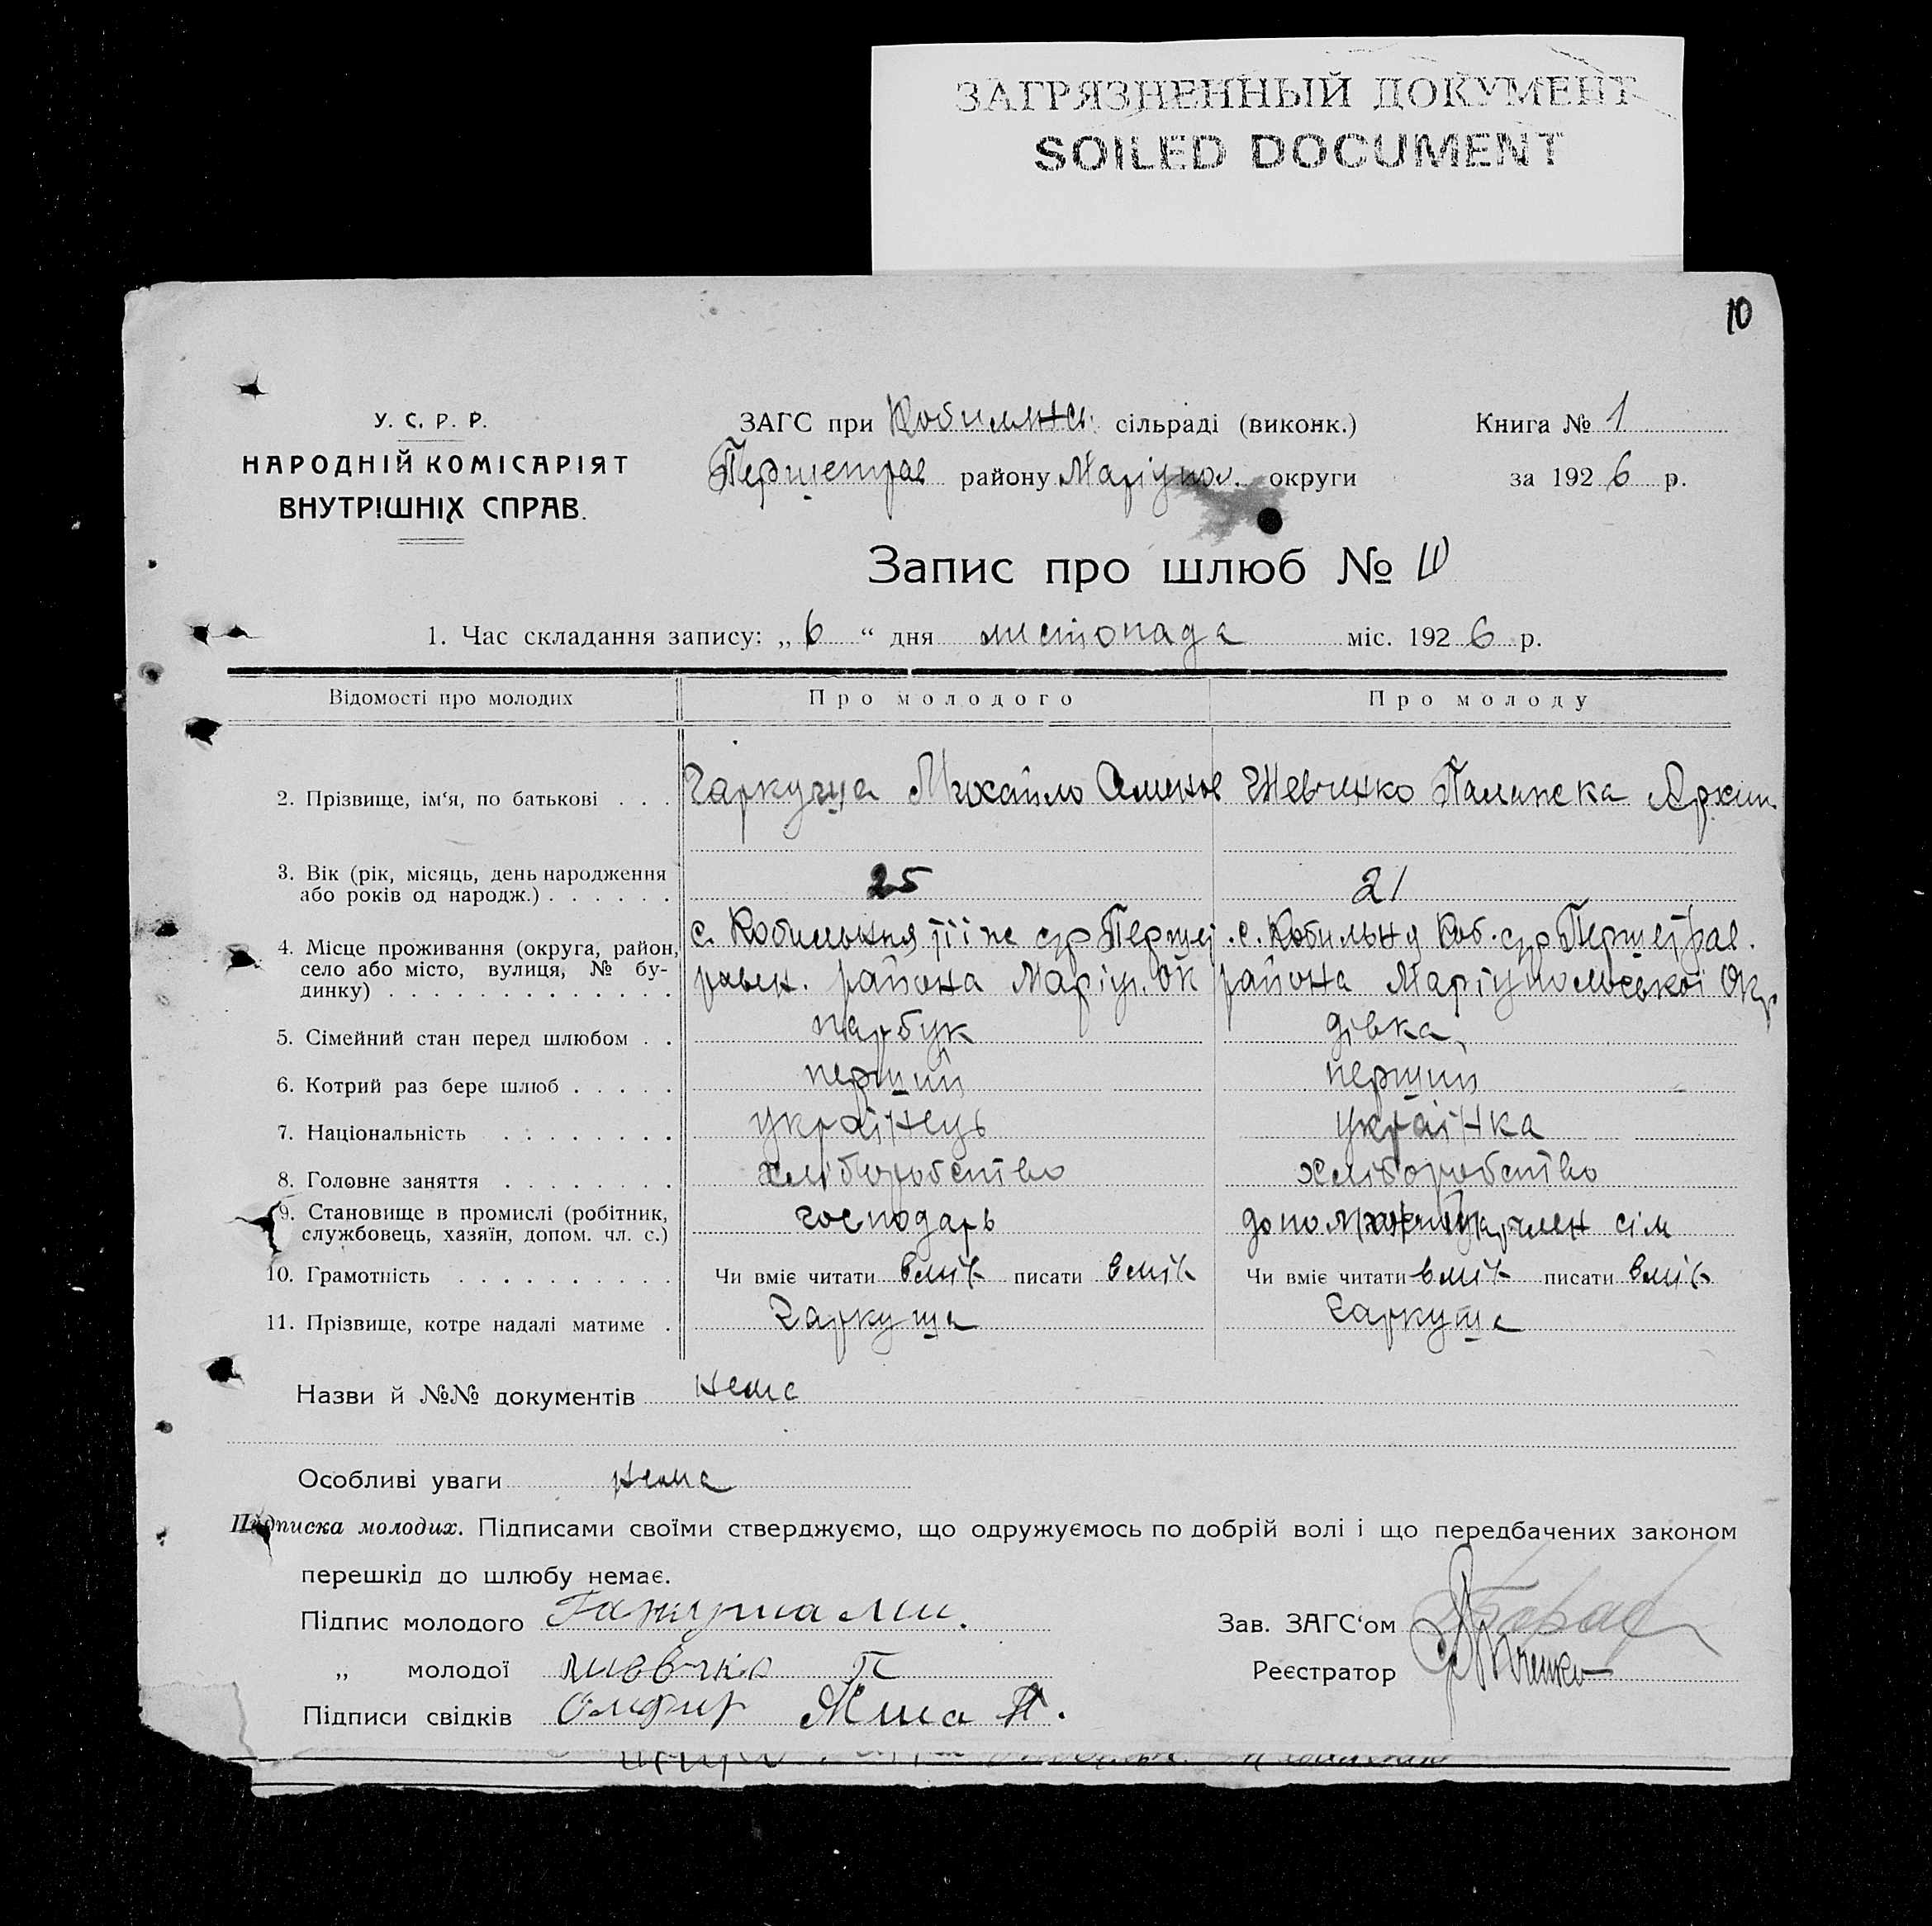 ЗАГРЯЗНЕННЫЙ ДОКУМЕНТ
SOILED DOCUMENT
10
У. С. Р. Р.
НАРОДНІЙ КОМІСАРІЯТ
ВНУТРІШНІХ СПРАВ.
ЗАГС при сільраді (виконк.)
Першетрав району Маріупол. округи
Книга № 1
за 1926 р.
Запис про шлюб №
1. Час складання запису: „6“ дня листопада міс. 1926 р.
Відомості про молодих Про молодого Про молоду
2. Прізвище, ім‘я, по батькові . . . Гаркуша Михайло Шевченко Архип.
3. Вік (рік, місяць, день народження
або років од народж.) . . . . . . 25 21
4. Місце проживання (округа, район, с. Кобильня с. Кобильня Коб. с/р Першетрав.
село або місто, вулиця, № бу- района Маріуп. ок района Маріупольської Окр
динку) . . . . . . . . . . . . .
5. Сімейний стан перед шлюбом . . парубок дівка
6. Котрий раз бере шлюб . . . . . перший перший
7. Національність . . . . . . . . українець українка
8. Головне заняття . . . . . . . . хліборобство хліборобство
9. Становище в промислі (робітник, господарь член сім
службовець, хазяїн, допом. чл. с.)
10. Грамотність . . . . . . . . . . Чи вміє читати вміє писати вміє Чи вміє читати вміє писати вміє
11. Прізвище, котре надалі матиме . Гаркуша Гаркуша
Назви й №№ документів нема
Особливі уваги нема
Підписка молодих. Підписами своїми стверджуємо, що одружуємось по добрій волі і що передбачених законом
перешкід до шлюбу немає.
Підпис молодого Гаркуша Ми.
„ молодої П
Підписи свідків
Зав. ЗАГС‘ом
Реєстратор